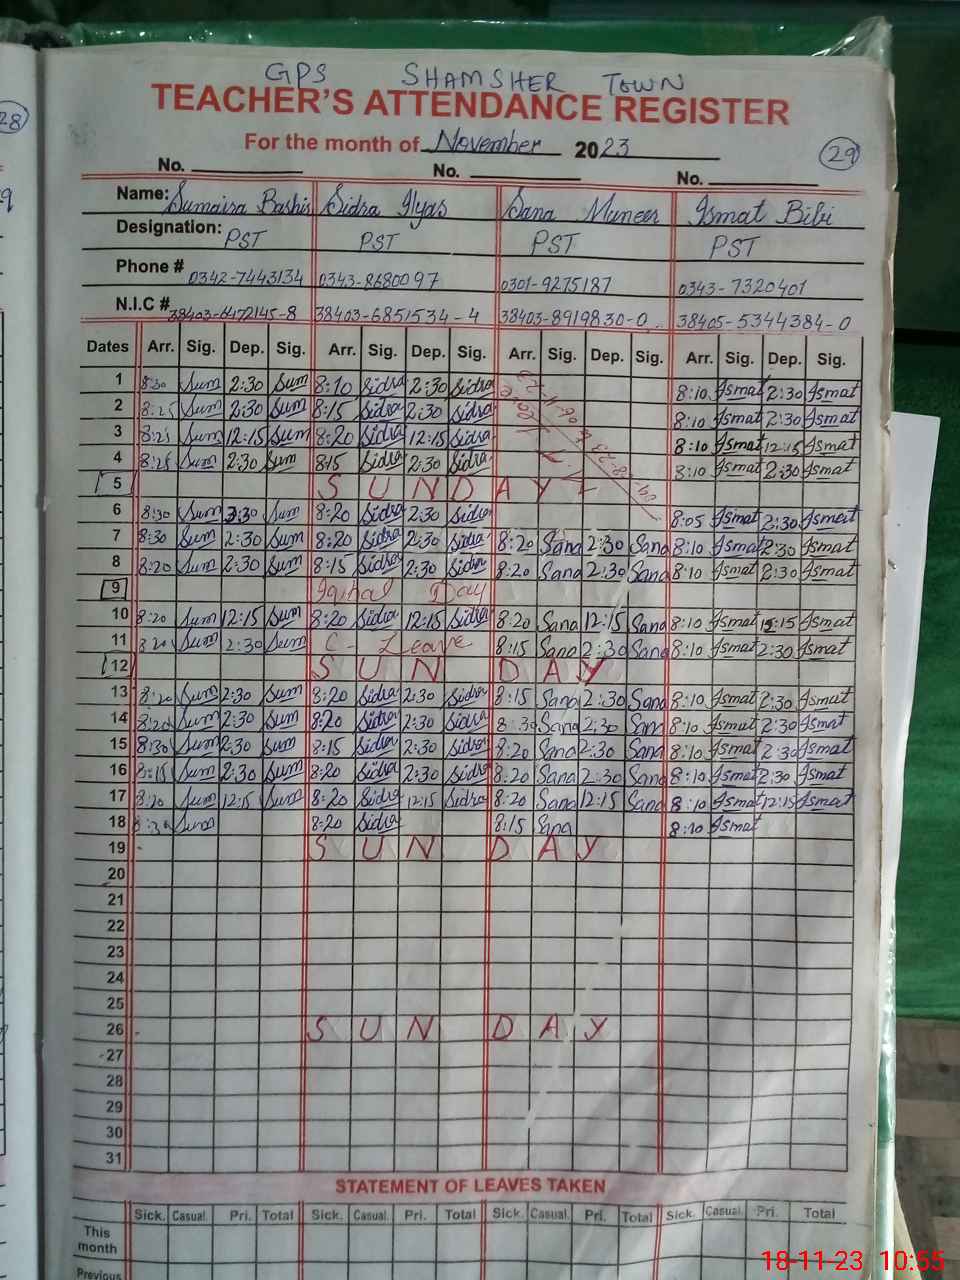 GPS SHAMSHER TOWN
TEACHER'S ATTENDANCE REGISTER
For the month of November 2023
29
28
No. No. No.
Name: Sumaira Bashir Sidra Ilyas Sana Muneer Ismat Bibi
Designation: PST PST PST PST
Phone # 0342-7443134 0343-8680097 0301-9275187 0343-7320401
N.I.C # 38403-6472145-8 38403-6851534-4 38403-8919830-0 38405-5344384-0
Dates Arr. Sig. Dep. Sig. Arr. Sig. Dep. Sig. Arr. Sig. Dep. Sig. Arr. Sig. Dep. Sig.
1 8:30 Sum 2:30 Sum 8:10 Sidra 2:30 Sidra 8:10 Ismat 2:30 Ismat
2 8:25 Sum 2:30 Sum 8:15 Sidra 2:30 Sidra 8:10 Ismat 2:30 Ismat
3 8:25 Sum 12:15 Sum 8:20 Sidra 12:15 Sidra 8:10 Ismat 12:15 Ismat
4 8:25 Sum 2:30 Sum 8:15 Sidra 2:30 Sidra 8:10 Ismat 2:30 Ismat
5 SUNDAY
6 8:30 Sum 2:30 Sum 8:20 Sidra 2:30 Sidra 8:05 Ismat 2:30 Ismat
7 8:30 Sum 2:30 Sum 8:20 Sidra 2:30 Sidra 8:20 Sana 2:30 Sana 8:10 Ismat 2:30 Ismat
8 8:20 Sum 2:30 Sum 8:15 Sidra 2:30 Sidra 8:20 Sana 2:30 Sana 8:10 Ismat 2:30 Ismat
9 Iqbal Day
10 8:20 Sum 12:15 Sum 8:20 Sidra 12:15 Sidra 8:20 Sana 12:15 Sana 8:10 Ismat 12:15 Ismat
11 8:20 Sum 2:30 Sum C- Leave 8:15 Sana 2:30 Sana 8:10 Ismat 2:30 Ismat
12 SUN DAY
13 8:20 Sum 2:30 Sum 8:20 Sidra 2:30 Sidra 8:15 Sana 2:30 Sana 8:10 Ismat 2:30 Ismat
14 8:20 Sum 2:30 Sum 8:20 Sidra 2:30 Sidra 8:30 Sana 2:30 Sana 8:10 Ismat 2:30 Ismat
15 8:30 Sum 2:30 Sum 8:15 Sidra 2:30 Sidra 8:20 Sana 2:30 Sana 8:10 Ismat 2:30 Ismat
16 8:15 Sum 2:30 Sum 8:20 Sidra 2:30 Sidra 8:20 Sana 2:30 Sana 8:10 Ismat 2:30 Ismat
17 8:20 Sum 12:15 Sum 8:20 Sidra 12:15 Sidra 8:20 Sana 12:15 Sana 8:10 Ismat 12:15 Ismat
18 Sum 8:20 Sidra 8:15 Sana 8:10 Ismat
19 SUN DAY
20
21
22
23
24
25
26 SUN DAY
27
28
29
30
31
STATEMENT OF LEAVES TAKEN
Sick. Casual. Pri. Total Sick. Casual. Pri. Total Sick. Casual. Pri. Total Sick. Casual. Pri. Total
This month
Previous
18-11-23 10:55